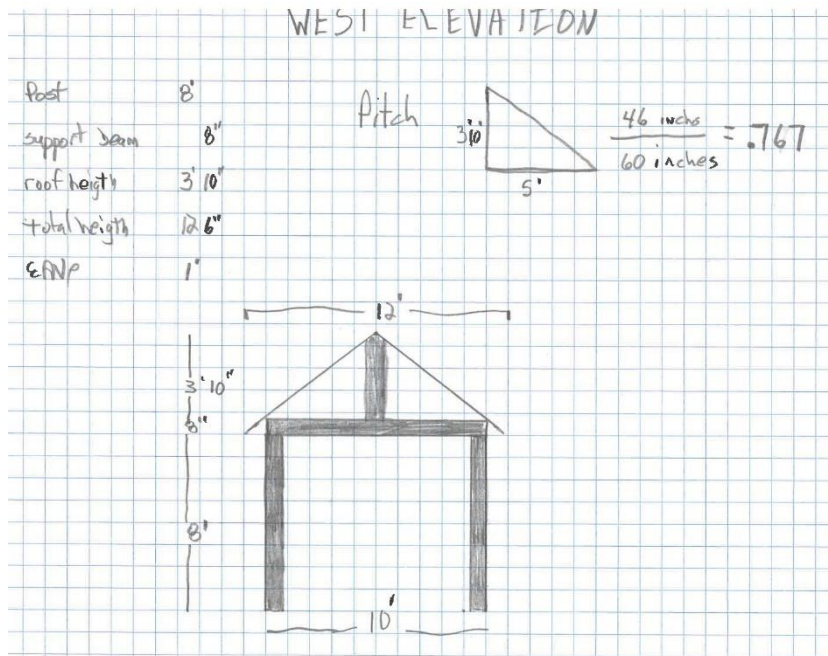 WEST ELEVATION
Post 8'
support beam 8"
roof heigth 3' 10"
total heigth 12 6"
EAVE 1'
Pitch
3'10"
5'
46 inchs
60 inches
= .767
12'
3' 10"
8"
8'
10'